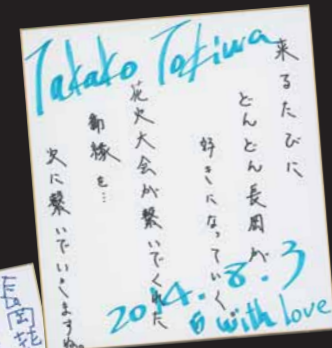 Takako Tokiwa
来るたびに
どんどん長岡が
好きになっていく
花火大会が繋いでくれた
御縁を…
次に繋いでいきますね。
2014.8.3
with love
長岡花